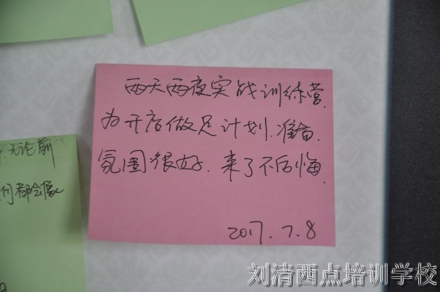 两天两夜实战训练营.
为开店做足计划.准备.
氛围很好.来了不后悔.
2017.7.8
无论前
都会
刘清西点培训学校